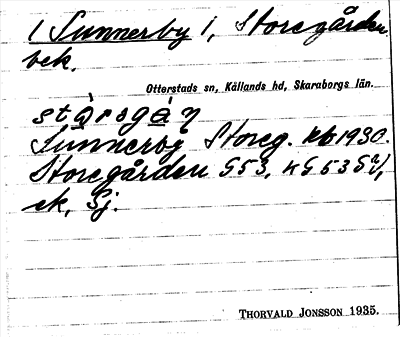 1 Sunnerby 1, Storegården
bek.
Otterstads sn, Kållands hd, Skaraborgs län.
Sunnerby Storeg. kb 1930.
Storegården G 53,
ek, Sj.
THORVALD JONSSON 1935.